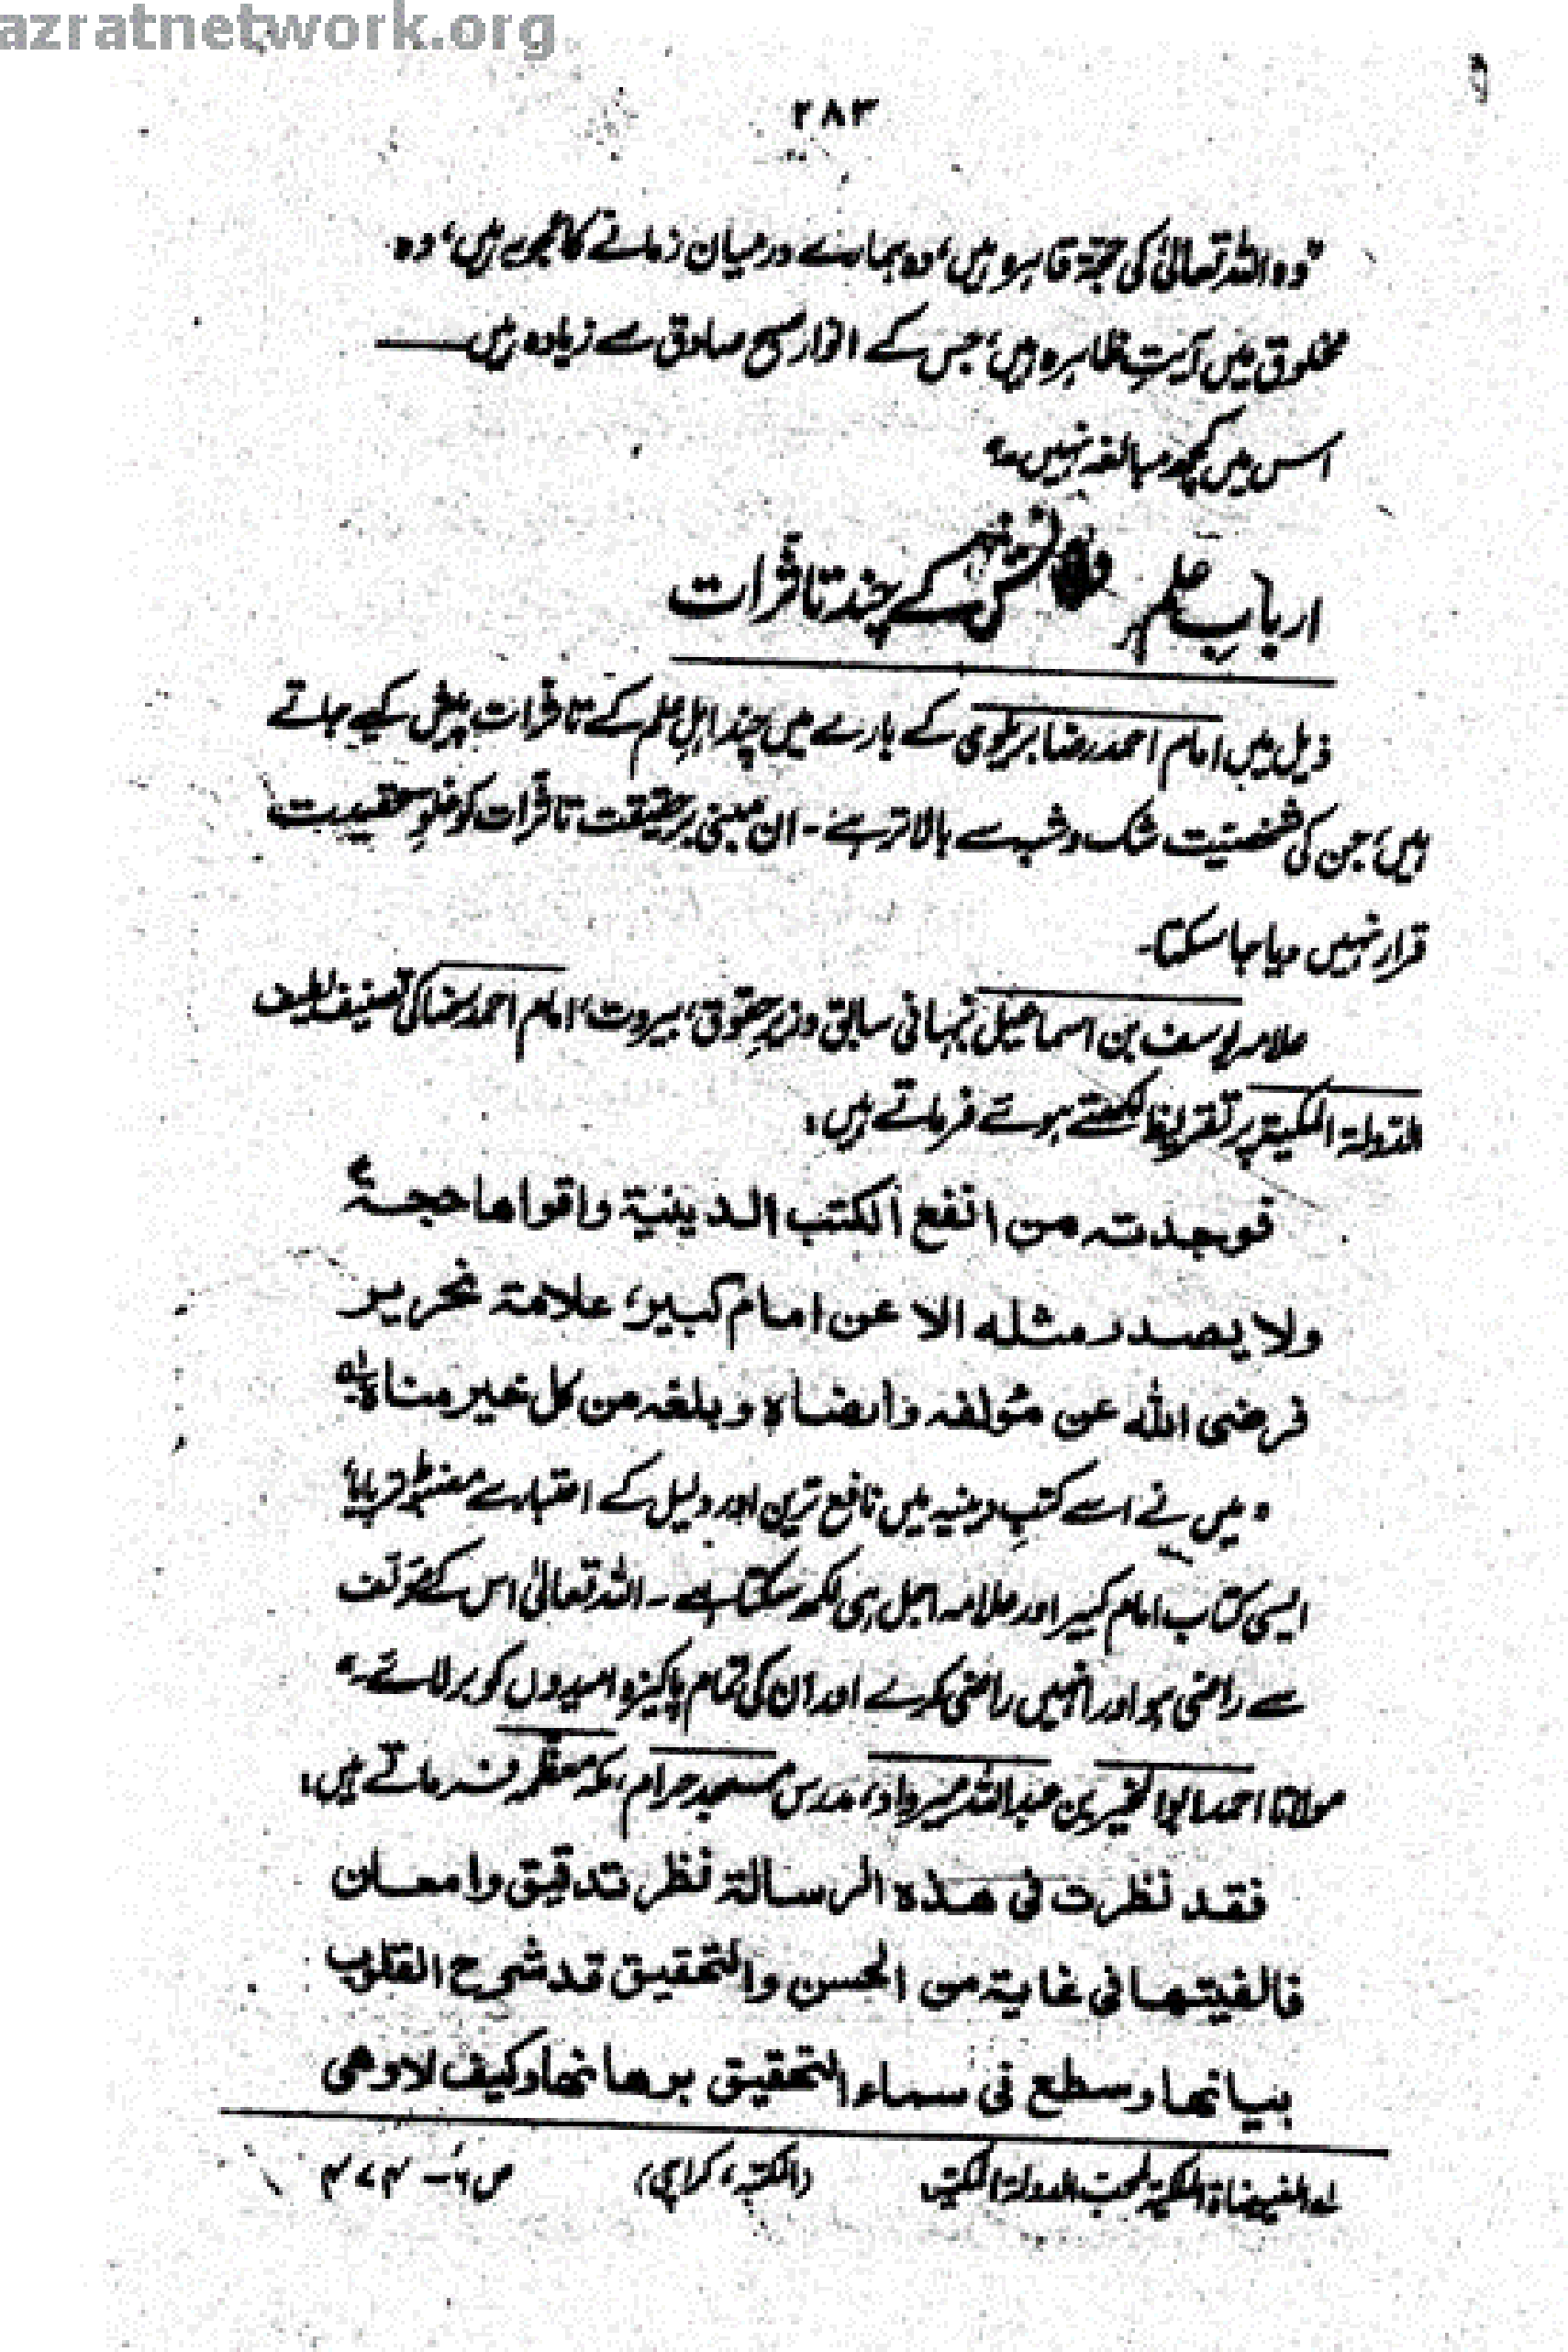 azratnetwork.org
۲۸۳
"وہ اللہ تعالیٰ کی حجۃ قاہرہ ہیں، وہ ہمارے درمیان زمانے کا عجوبہ ہیں، وہ
مخلوق میں آیتِ ظاہرہ ہیں، جس کے انوار صبح صادق سے زیادہ ہیں ——
اس میں کچھ مبالغہ نہیں۔"
اربابِ علم و دانش کے چند تاثرات
ذیل میں امام احمد رضا بریلوی کے بارے میں چند اہلِ علم کے تاثرات پیش کیے جاتے
ہیں، جن کی شخصیت شک و شبہ سے بالاتر ہے۔ ان مبنی بر حقیقت تاثرات کو غلوِ عقیدت
قرار نہیں دیا جا سکتا۔
علامہ یوسف بن اسماعیل نبہانی سابق وزیرِ حقوق، بیروت، امام احمد رضا کی تصنیف لطیف
الدولۃ المکیۃ پر تقریظ لکھتے ہوئے فرماتے ہیں:
فوجدتہ من انفع الکتب الدینیۃ واقواھا حجۃ
ولا یصدر مثلہ الا عن امام کبیر، علامۃ نحریر
فرضی اللہ عن مؤلفہ وارضاہ وبلغہ من کل خیر مناہ لہ
"میں نے اسے کتبِ دینیہ میں نافع ترین اور دلیل کے اعتبار سے مضبوط تر پایا،
ایسی کتاب امام کبیر اور علامہ اجل ہی لکھ سکتا ہے۔ اللہ تعالیٰ اس کے مؤلف
سے راضی ہو اور انہیں راضی کرے اور ان کی تمام پاکیزہ امیدوں کو بر لائے۔"
مولانا احمد ابوالخیر بن عبداللہ میرداد، مدرس مسجد حرام، مکہ معظمہ فرماتے ہیں:
فقد نظرت فی ھذہ الرسالۃ نظر تدقیق وامعان
فالفیتھا فی غایۃ من الحسن والتحقیق قد شرح القلوب
بیانھا وسطع فی سماء التحقیق برھانھا وکیف لا وھی
لہ الفیوضاۃ الملکیۃ لمحب الدولۃ المکیۃ (المکتبہ، کراچی) ص